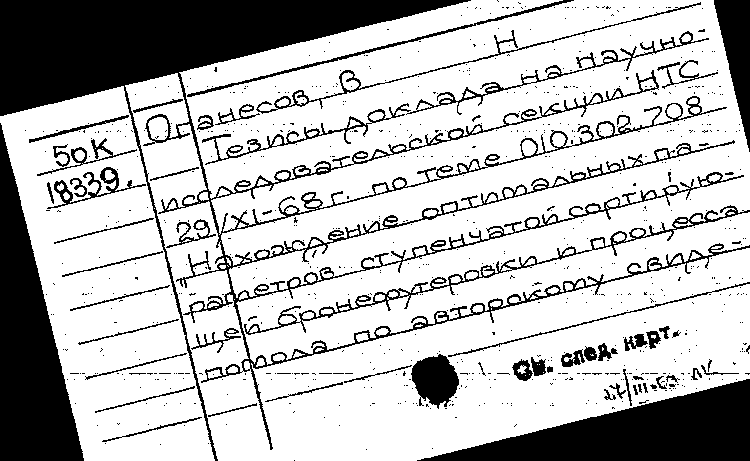 Н
Оганесов, В
50К
18339.
Тезисы доклада на научно-
исследовательской секции НТС
29/XI-68 г. по теме 010.302.708
"Нахождение оптимальных па-
раметров ступенчатой сортирую-
щей бронефутеровки и процесса
помола по авторскому свиде-
См. след. карт.